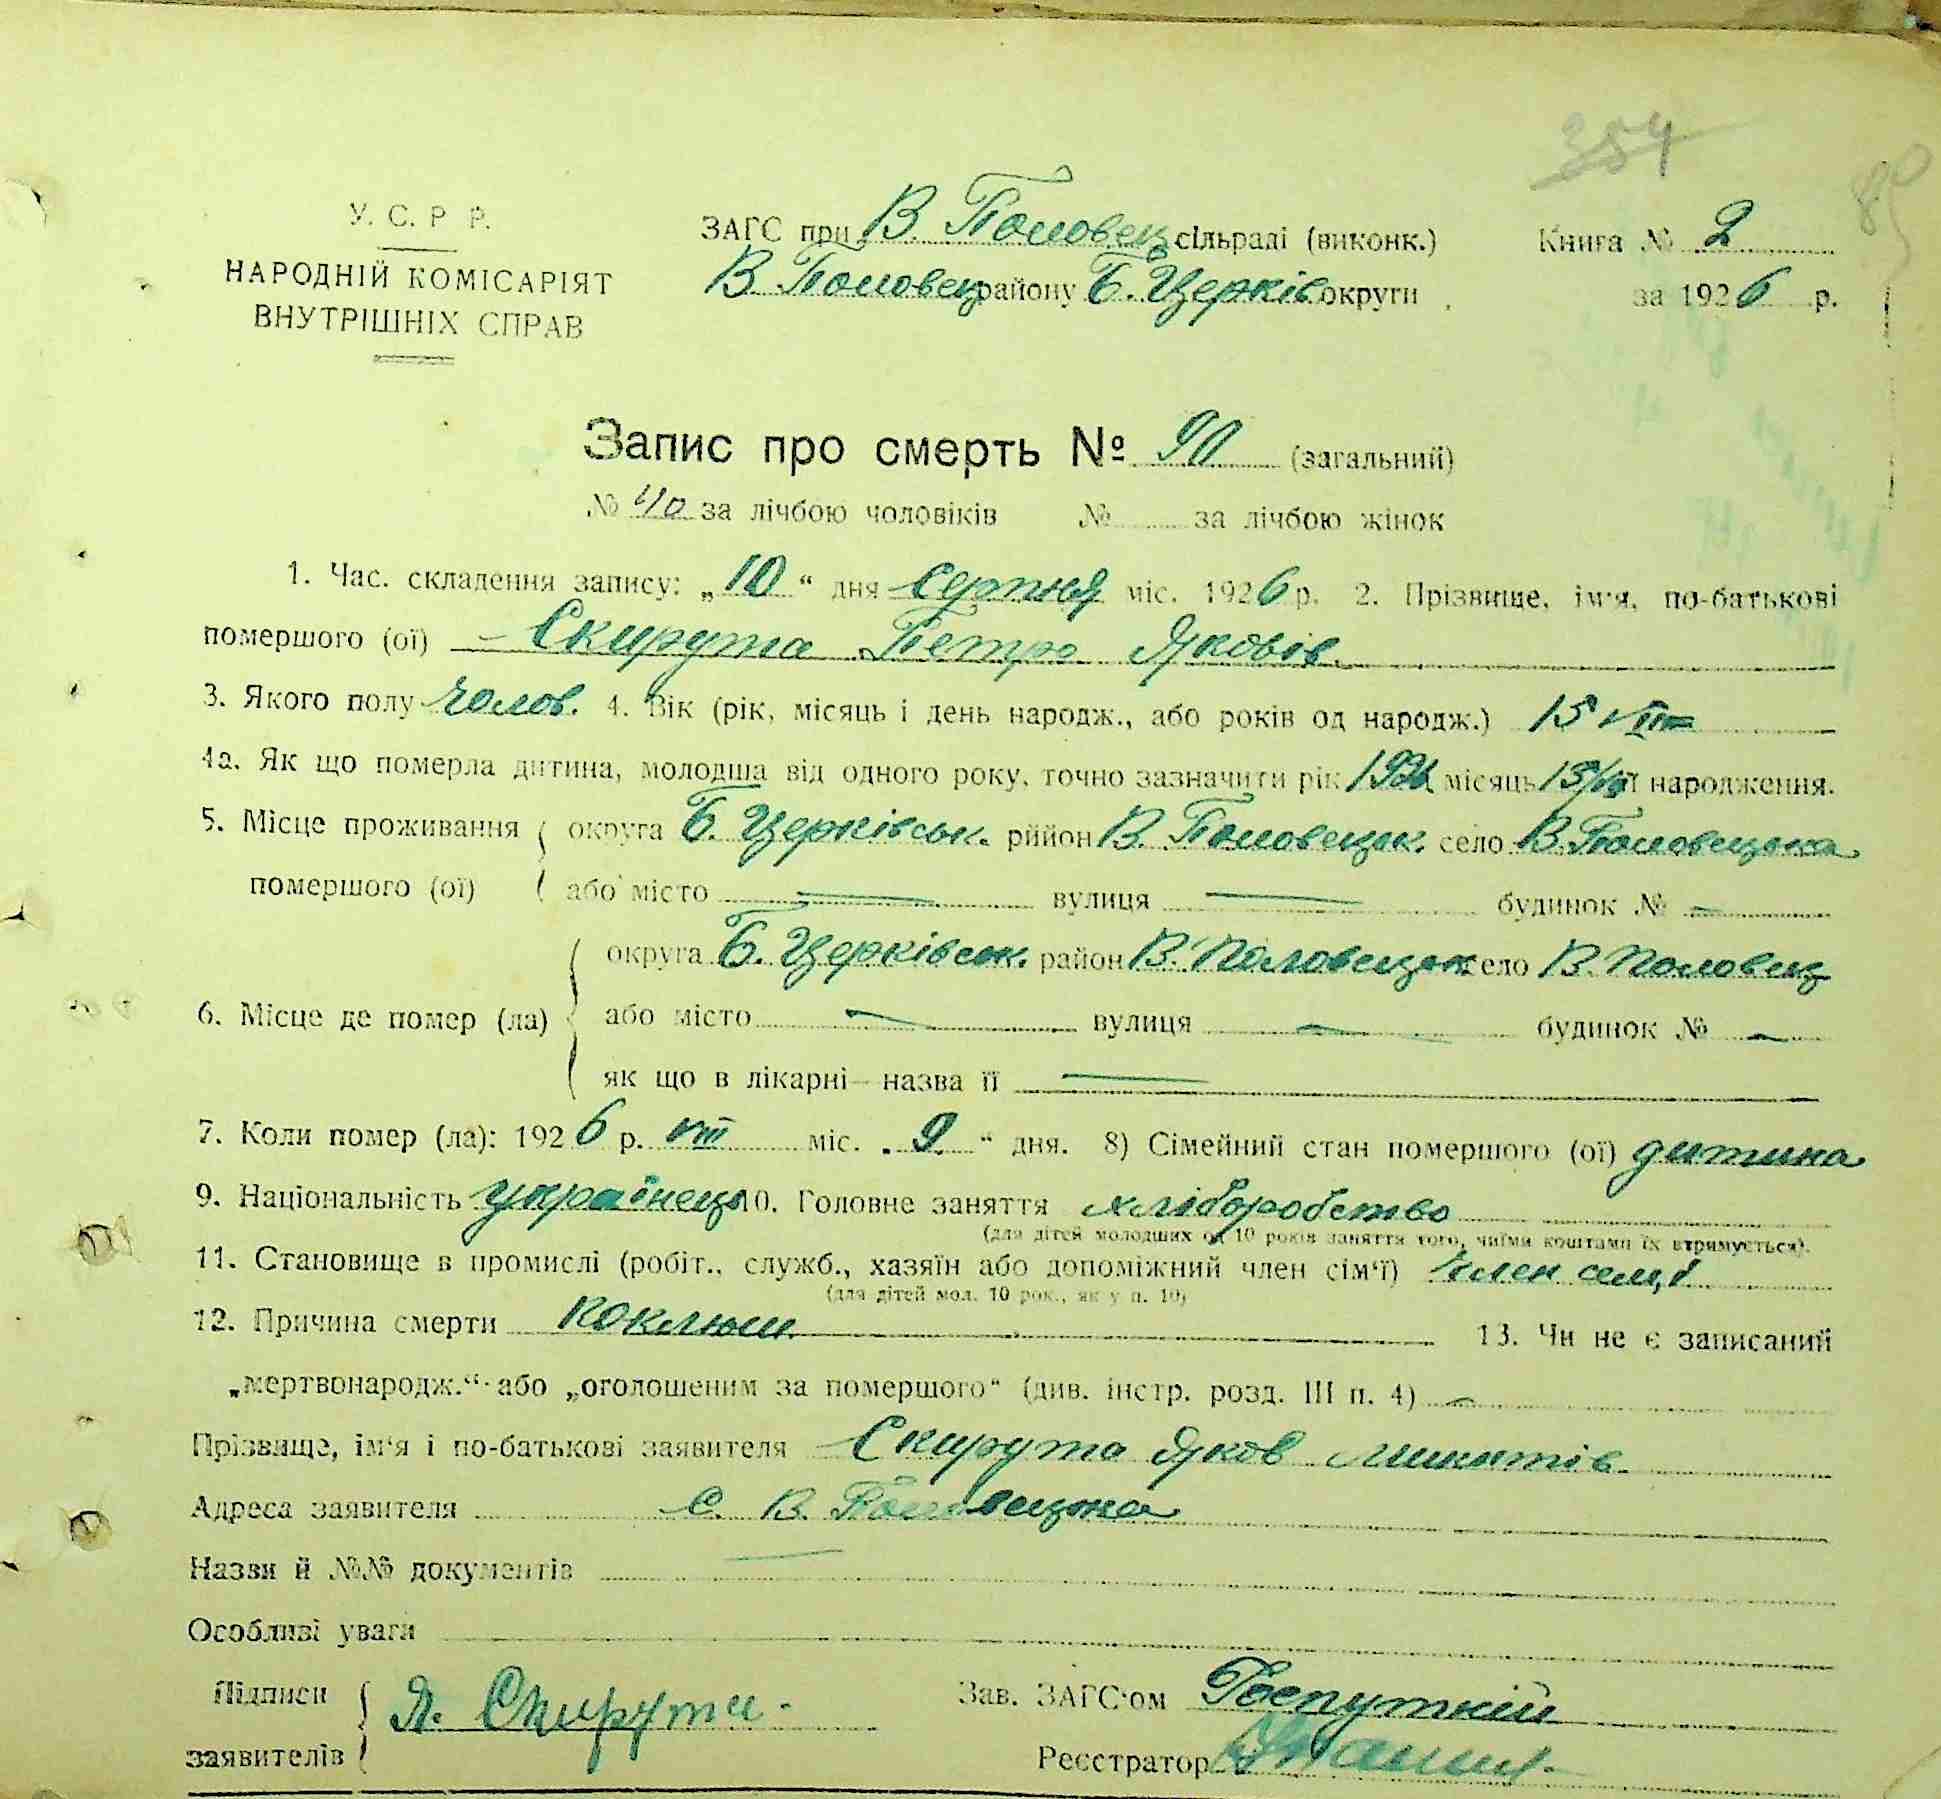 354
80
У. С. Р Р.
НАРОДНІЙ КОМІСАРІЯТ
ВНУТРІШНІХ СПРАВ
ЗАГС при В. Половец сільраді (виконк.)
В. Половец району Б. Церків округи
Книга № 2
за 1926 р.
Запис про смерть № 90 (загальний)
№ 40 за лічбою чоловіків № за лічбою жінок
1. Час. складення запису: „10“ дня Серпня міс. 1926 р. 2. Прізвище, ім'я, по-батькові
помершого (ої) – Скирута Петро Яковів
3. Якого полу чолов. 4. Вік (рік, місяць і день народж., або років од народж.) 15 VII
4а. Як що померла дитина, молодша від одного року, точно зазначити рік місяць її народження.
5. Місце проживання округа Б. Церківськ. рййон В. Половецьк. село В. Половецька
помершого (ої) або місто — вулиця — будинок № —
округа Б. Церківськ. район В. Половецьк село В. Половец
6. Місце де помер (ла) або місто — вулиця — будинок № —
як що в лікарні—назва її —
7. Коли помер (ла): 1926 р. VIII міс. „9“ дня. 8) Сімейний стан помершого (ої) дитина
9. Національність українец 10. Головне заняття хліборобство
(для дітей молодших од 10 років заняття того, чиїми коштами їх втримується).
11. Становище в промислі (робіт., служб., хазяїн або допоміжний член сім'ї) член семʼї
(для дітей мол. 10 рок., як у п. 10)
12. Причина смерти коклюш 13. Чи не є записаний
„мертвонародж.“ або „оголошеним за помершого“ (див. інстр. розд. III п. 4) —
Прізвище, ім'я і по-батькові заявителя Скирута Яков Микитів
Адреса заявителя с. В. Половецька
Назви й №№ документів —
Особливі уваги
Підписи Я. Скирута. Зав. ЗАГС'ом
заявителів Реєстратор